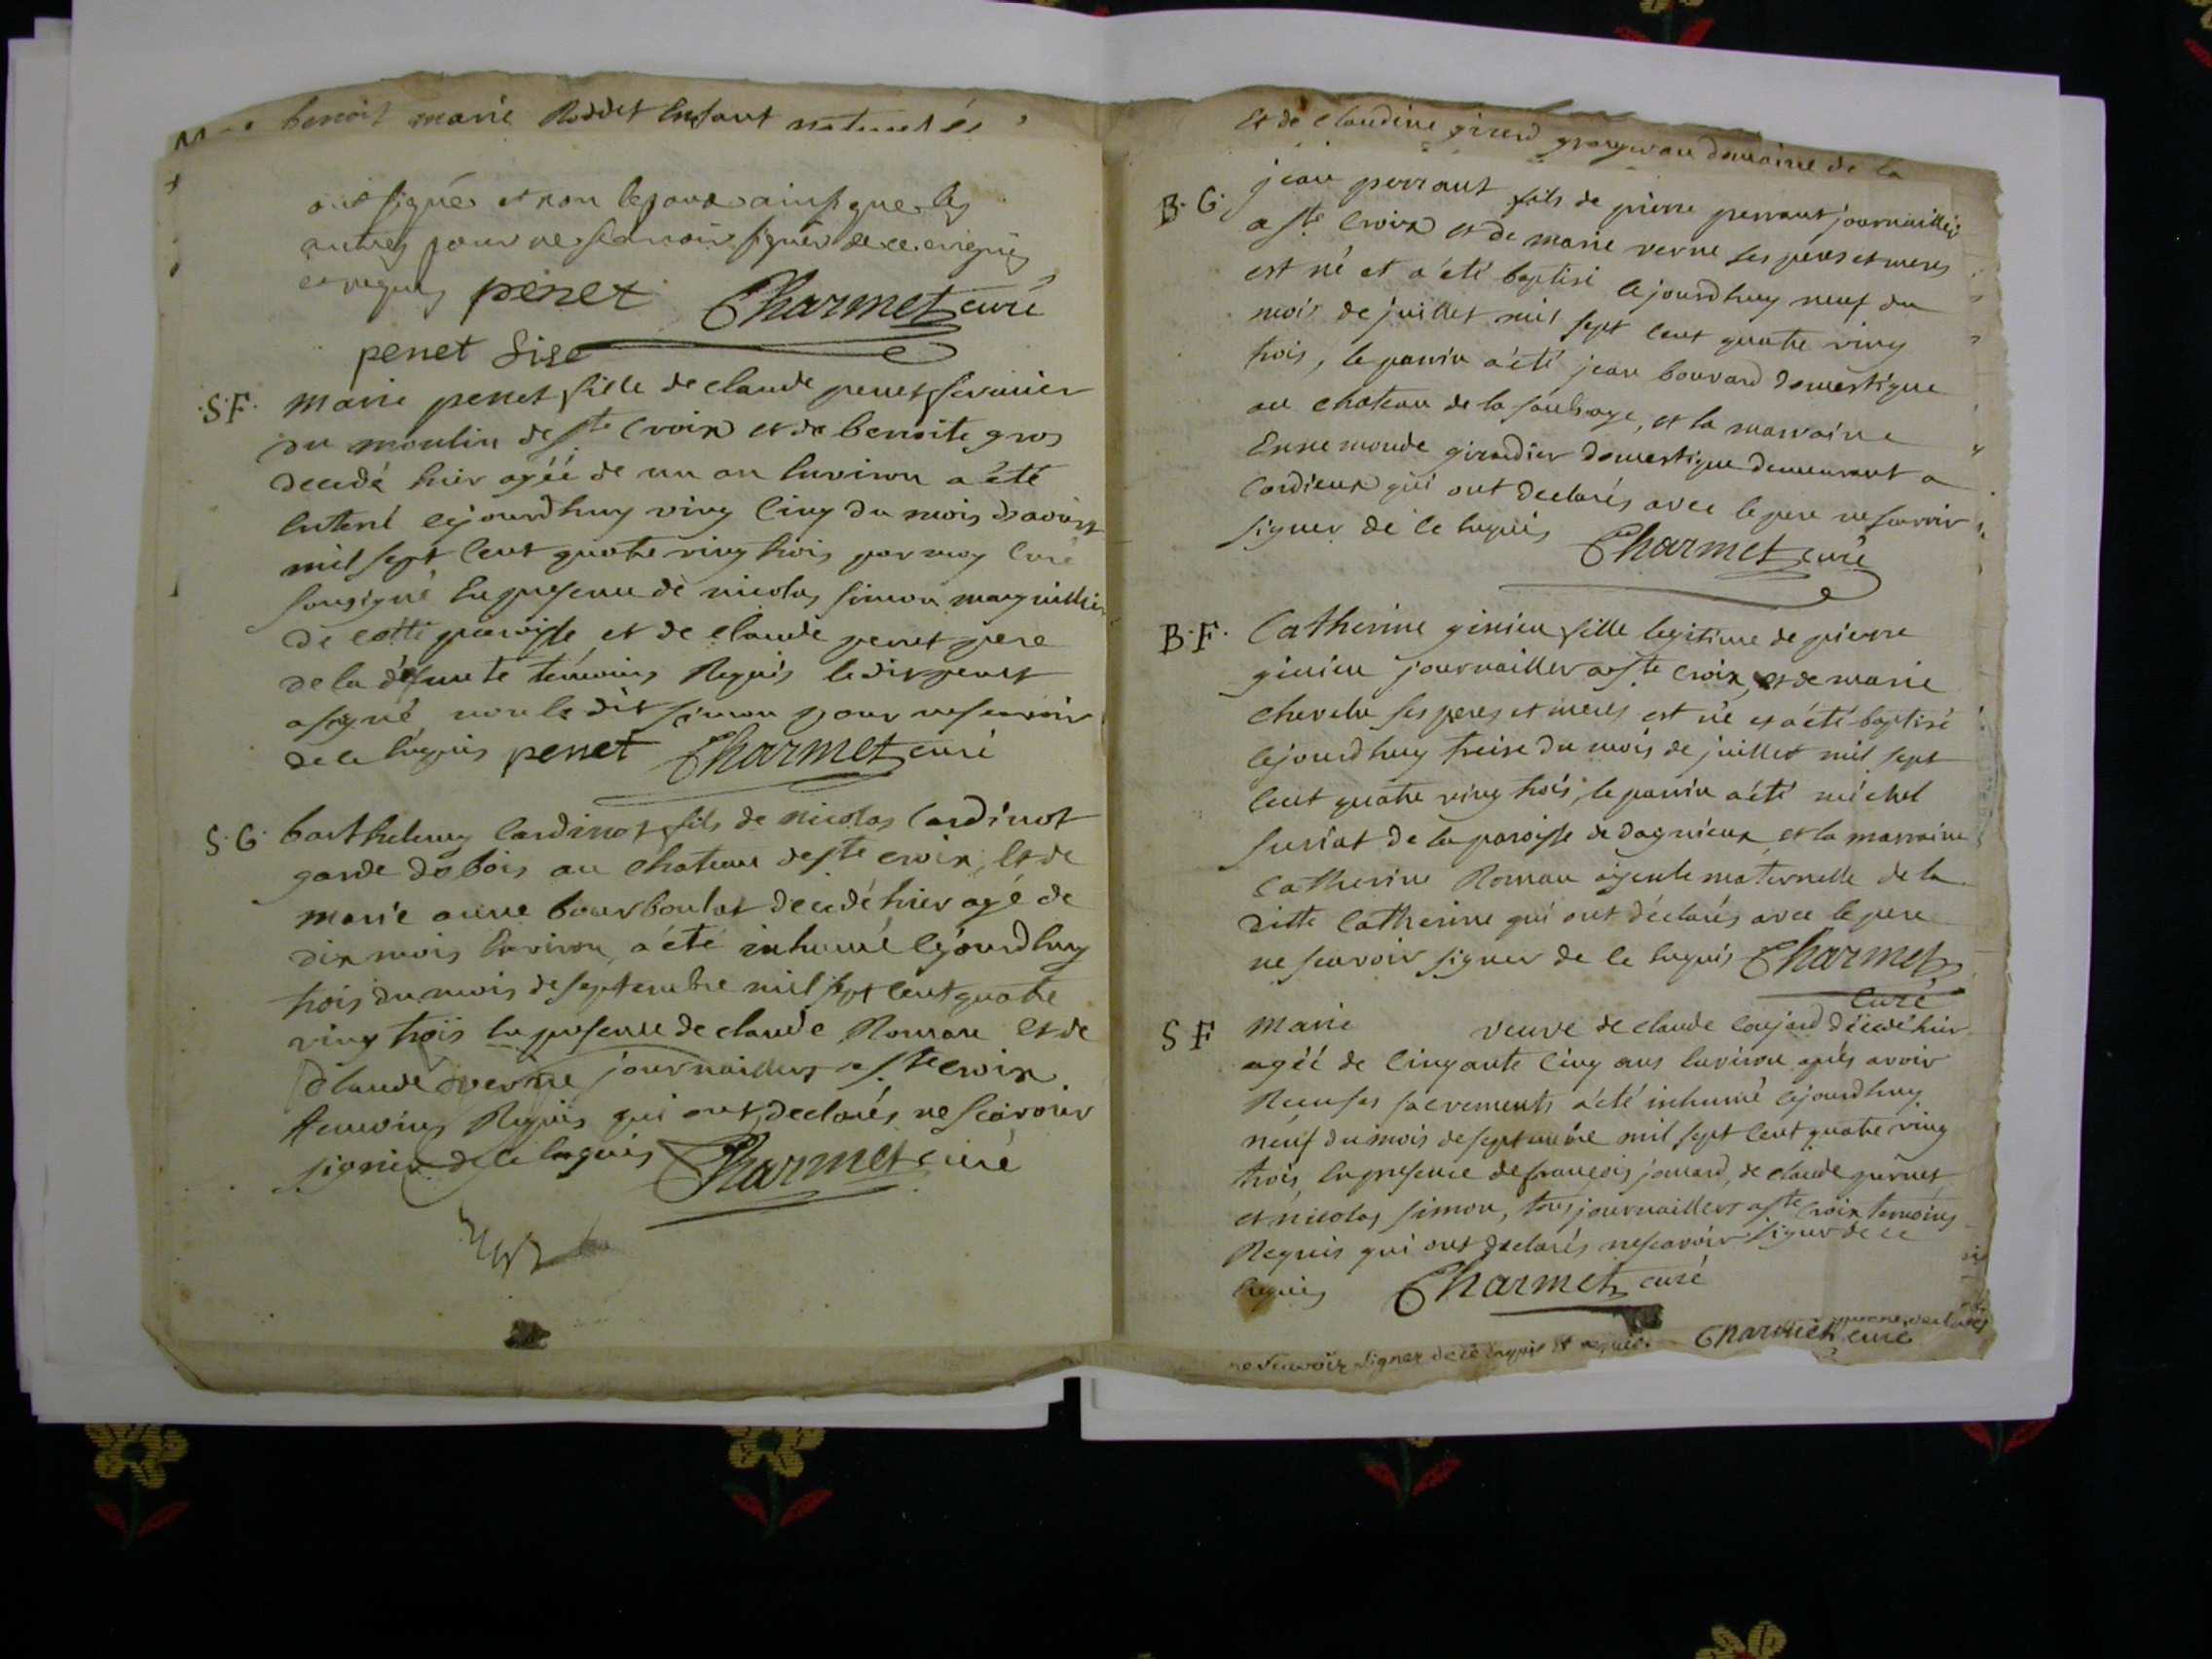 benoit marie Roddet Enfant naturel
ont signés et non lepoux ainsi que les
autres pour ne scavoir signer de ce enquis
et requis penet Charmet curé
penet Size
S.F. marie penet fille de claude penet fermier
du moulin de Ste Croix et de benoite gros
decedé hier agéé de un an Environ a été
Enterré cejourdhuy ving cinq du mois daoust
mil sept Cent quatre ving trois par moy Curé
sousigné En presence de nicolas simon marguillier
de cette paroisse et de claude penet pere
de la défunte témoins Requis ledit penet
a signé non le dit simon pour ne scavoir
de ce Enquis penet Charmet curé
S.G. barthelemy Cardinot fils de nicolas Cardinot
garde de bois au chateau de Ste croix, Et de
marie anne bourboulat decedé hier agé de
dix mois Environ, a été inhumé cejourdhuy
trois du mois de septembre mil sept Cent quatre
ving trois En presence de claude Roman Et de
claude verne journailliers a Ste croix
temoins Requis qui ont declarés ne scavoir
signer de ce Enquis Charmet curé
Et de Claudine girerd granger au domaine de la
B.G. jean perraut fils de pierre perraut journaillier
a Ste Croix et de marie verne ses peres et meres
est né et a été baptisé cejourdhuy neuf du
mois de juillet mil sept Cent quatre ving
trois, le parrin a été jean bouvard domestique
au chateau de la saulsaye, et la marraine
Ennemonde girardier domestique demeurant a
Cordieux qui ont declarés avec le pere ne scavoir
signer de ce Enquis Charmet curé
B.F. Catherine ginieu fille legitime de pierre
ginieu journaillier a Ste Croix, et de marie
chevelu ses peres et meres est né et a été baptisé
cejourdhuy treise du mois de juillet mil sept
Cent quatre ving trois, le parrin a été michel
suriat de la paroisse de dagnieux et la marraine
Catherine Roman ayeule maternelle de la
ditte Catherine qui ont déclarés avec le pere
ne scavoir signer de ce Enquis Charmet
Curé
S F marie veuve de claude Coujard décédé hier
agéé de Cinquante Cinq ans Environ après avoir
Recu ses sacrements a été inhumé cejourdhuy
neuf du mois de septembre mil sept Cent quatre ving
trois, En presence de françois jouard, de claude pernet
et nicolas simon, tous journailliers a Ste Croix temoins
Requis qui ont declarés ne scavoir signer de ce
Enquis Charmet curé
ne scavoir signer de ce enquis et requis. Charmet curé